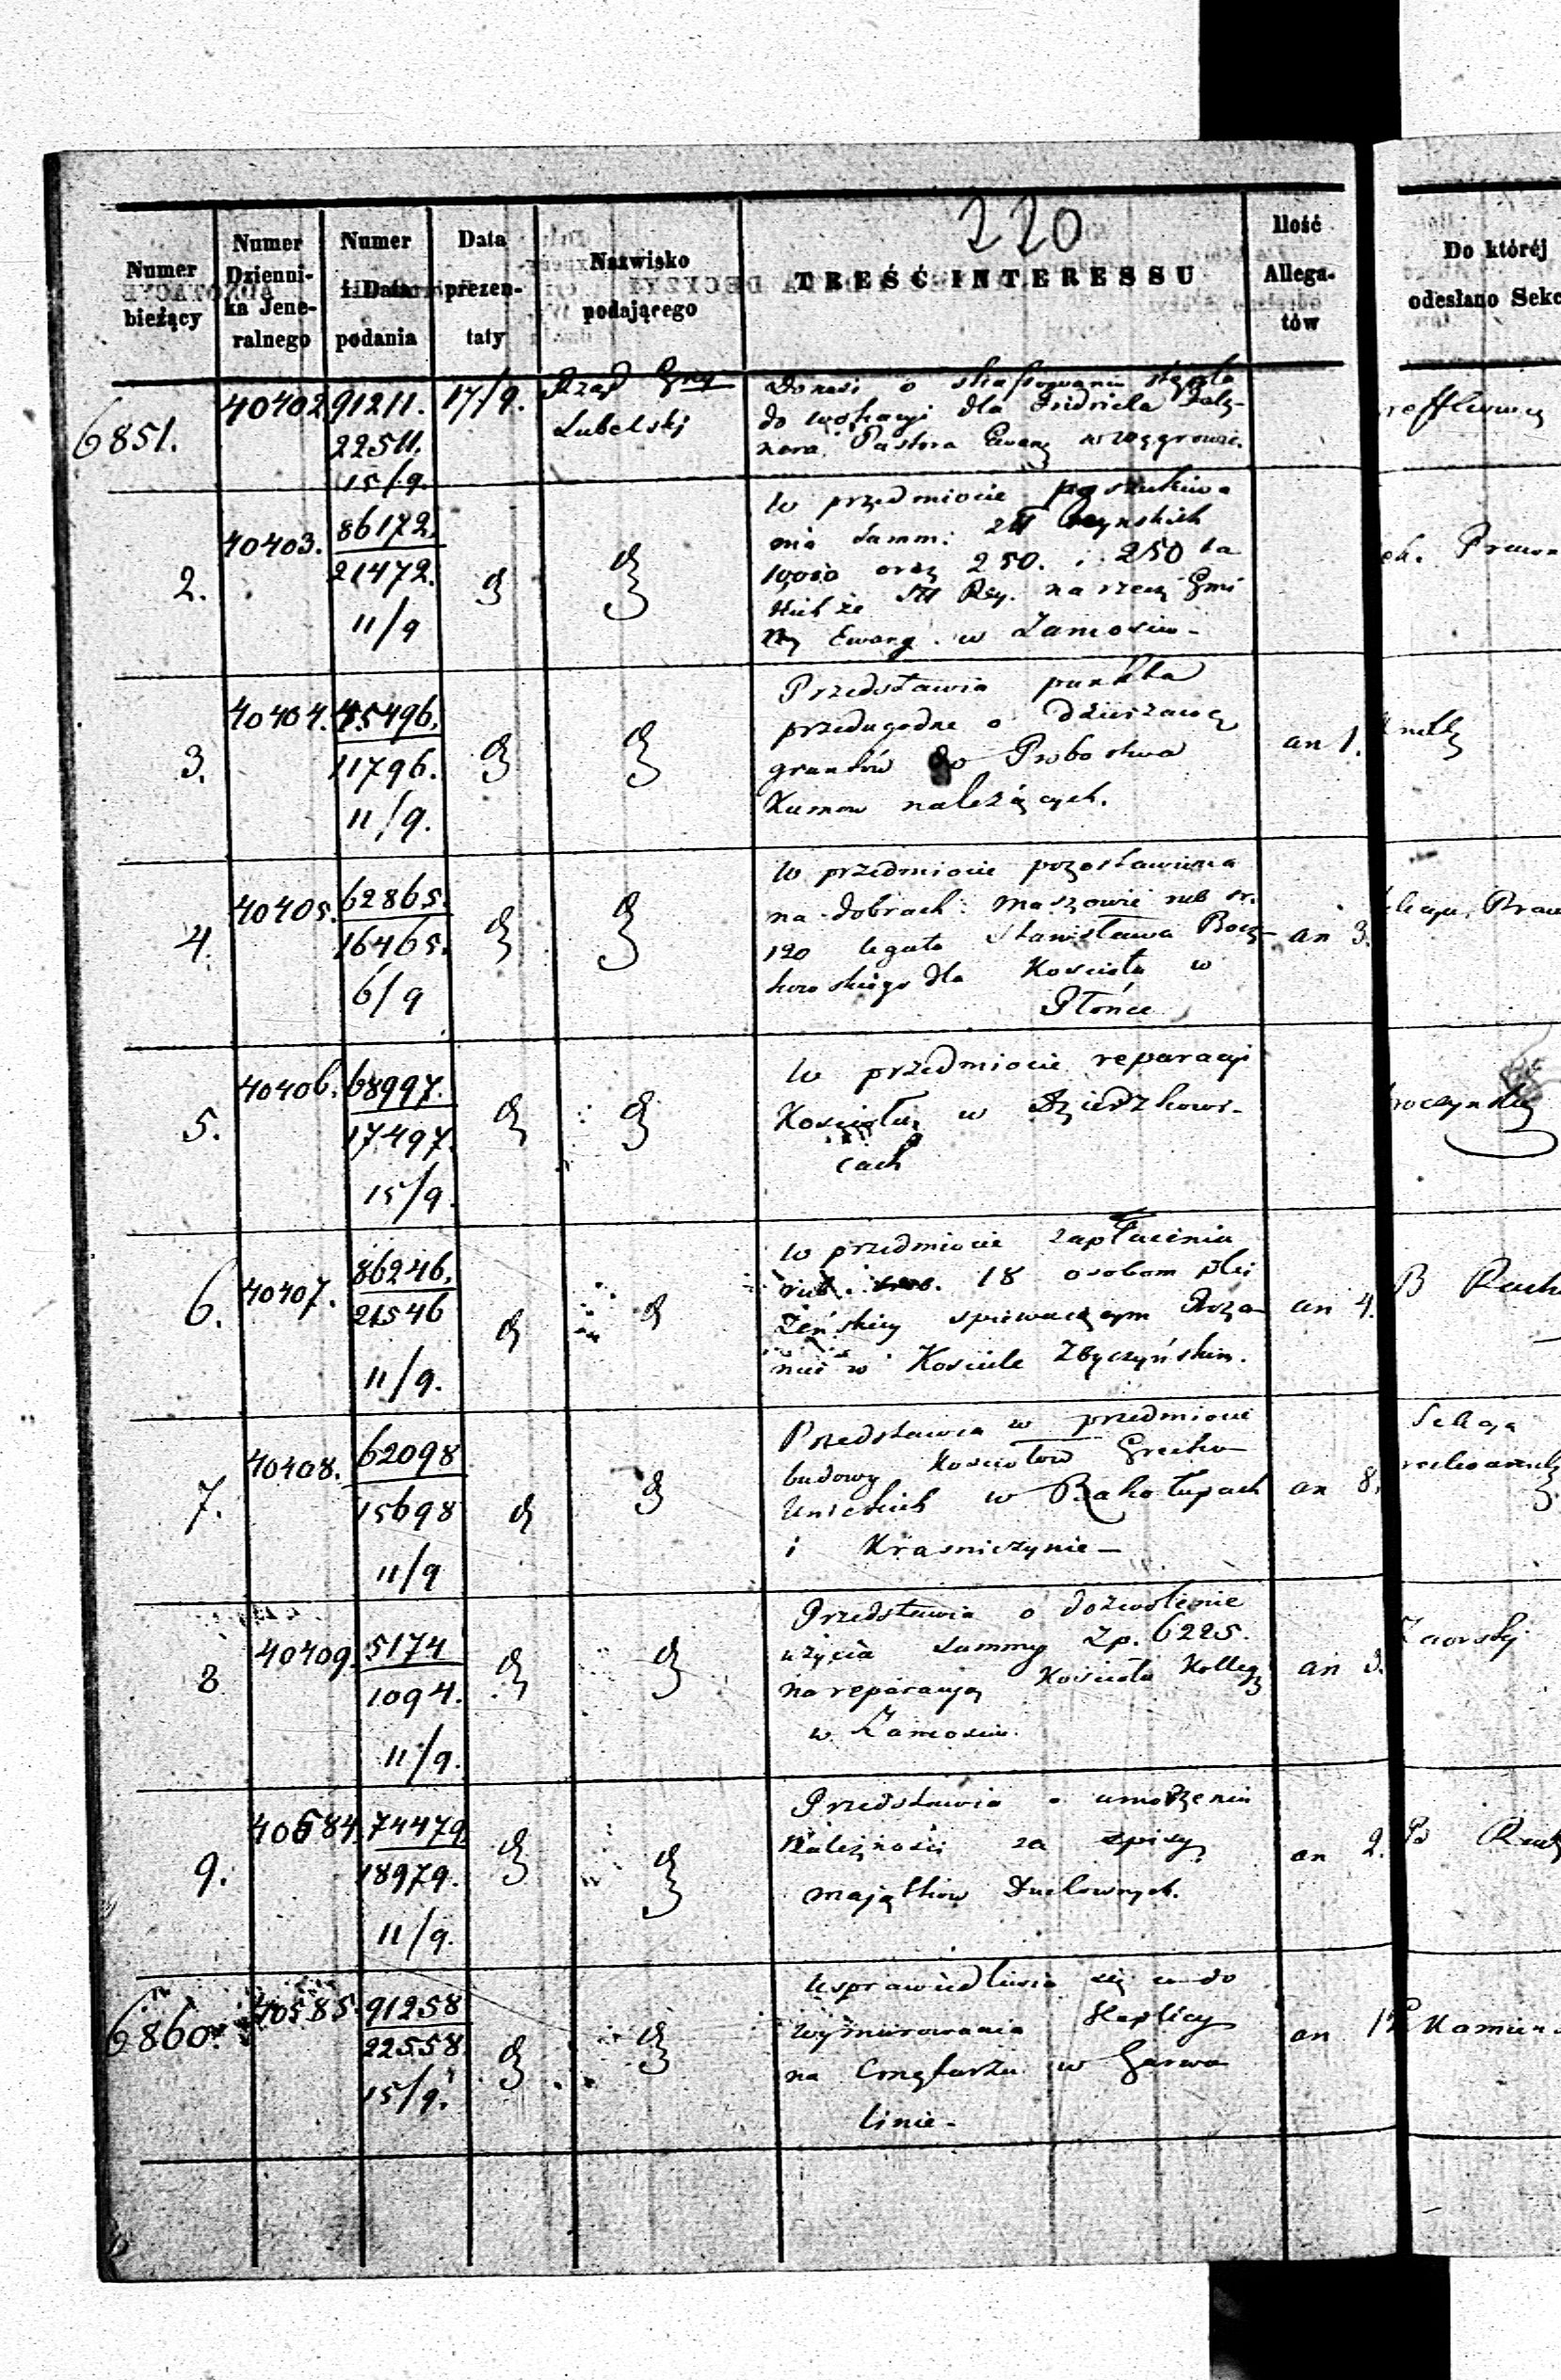 220
Numer bieżący
Numer Dziennika Jeneralnego
Numer i Data podania
Data prezentaty
Nazwisko podającego
TREŚĆ INTERESSU
Ilość Allegatów
Do któréj
odesłano Sekc
6851. 40402 91211. 17/9. Rząd Gub
22511. Lubelski
15/9.
Donosi o skassowaniu stępla
do wokacyi dla
Pastora Ewang w Węgrowie.
2. 40403. 86172.
21472.
11/9
W przedmiocie poszukiwa
nia Summ:
oraz 250. i 250 ta
na rzecz Gmi
ny Ewang. w Zamościu-
3. 40404. 45496.
11796.
11/9.
Przedstawia punkta
przedugodne o dzierżawę
gruntów do Probostwa
Kumow należących.
an 1.
4. 40405. 62865.
16465.
6/9
W przedmiocie pozostawienia
na dobrach: Maszowie rub sr.
120 legatu Stanisława Bocz-
kowskiego dla Kościoła w
Płonce
an 3.
5. 40406. 68997.
17497.
15/9.
W przedmiocie reparacyi
Kościoła w Dzierzkowi-
cach
6. 40407. 86246.
21546
11/9.
W przedmiocie zapłacenia
rub. 18 osobom płci
Żeńskiey spiewaiącym Róża-
niec w Kościele Zbyczyńskim.
an 4.
B Rach
7. 40408. 62098
15698
11/9
Przedstawia w przedmiocie
budowy Kościołów Grecko-
Unickich w Rakołupach
i Krasniczynie-
an 8.
8 40409. 5174
1094.
11/9.
Przedstawia o dozwolenie
użycia Summy Zp. 6225.
na reparacyą Kościoła Kolleg
w Zamościu.
an 3.
Zaorski
9. 40584. 74479
18979.
11/9.
Przedstawia o umorzenie
Należności za spisy
majątków Duchownych.
an 2.
B Rach
6860. 40585. 91258
22558.
15/9.
Usprawiedliwia się co do
wymurowania Kaplicy
na Cmętarzu w Garwo
linie-
an 1